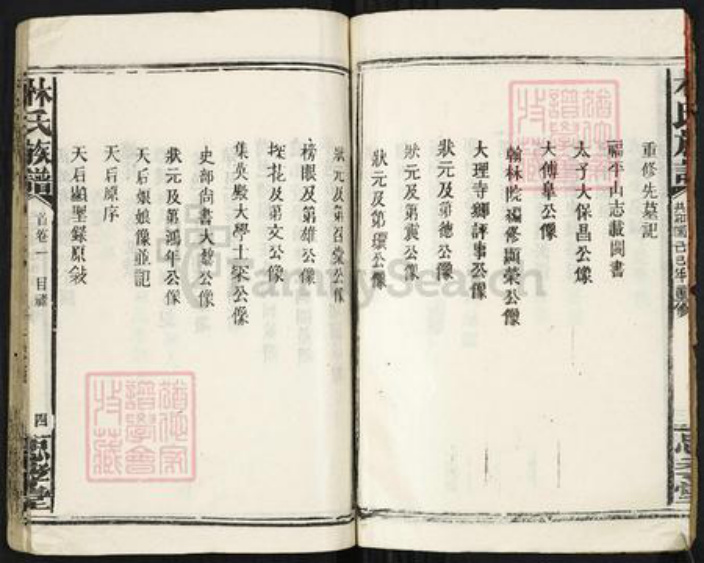 林氏族譜
共和國己巳年重修
思孝堂
重修先墓記
福平山志載閩書
太子大保昌公像
大傅皐公像
翰林院編修顯榮公像
大理寺鄉評事公像
狀元及第德公像
狀元及第賓公像
狀元及第環公像
狀元及第召棠公像
榜眼及第雄公像
探花及第文公像
集英殿大學士榮公像
吏部尚書大猷公像
狀元及第鴻年公像
天后娘娘像並記
天后原序
天后顯聖錄原敘
林氏族譜
首卷一
目錄
四
思孝堂
FamilySearch